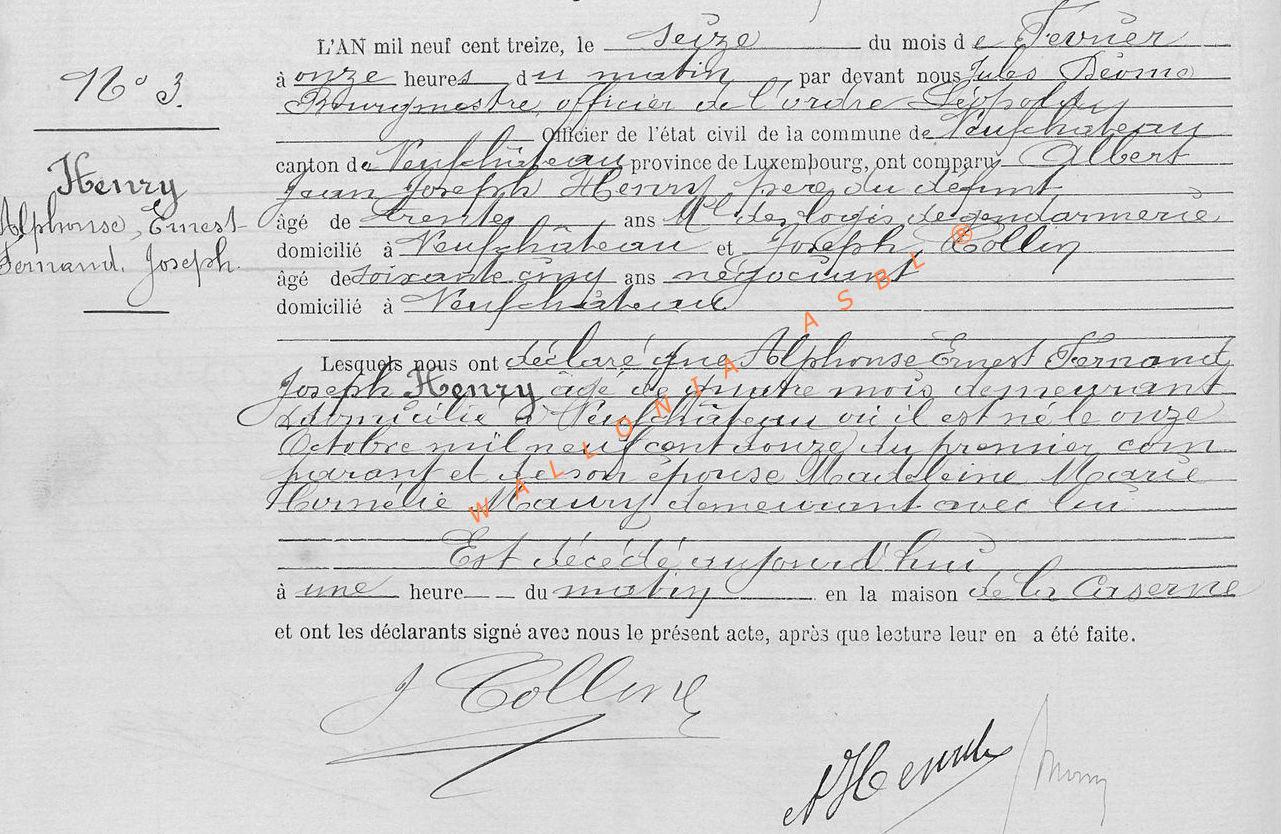 L'AN mil neuf cent treize, le seize du mois de Fevrier
N° 3.
à onze heures du matin par devant nous Jules Déome
Bourgmestre, officier de l'ordre Léopold
Officier de l'état civil de la commune de Neufchâteau
canton de Neufchâteau province de Luxembourg, ont comparu Albert
Jean Joseph Henry père du défunt
Henry
Alphonse, Ernest
Fernand, Joseph.
âgé de trente ans Mal des logis de gendarmerie
domicilié à Neufchâteau et Joseph Collin
âgé de soixante cinq ans négociant
domicilié à Neufchâteau
Lesquels nous ont déclaré que Alphonse Ernest Fernand
Joseph Henry âgé de quatre mois demeurant
domicilié à Neufchâteau où il est né le onze
Octobre mil neuf cent douze du premier com
parant et de son épouse Madeleine Marie
Cornélie Maury demeurant avec lui
Est décédé aujourd'hui
à une heure du matin en la maison de la Caserne
et ont les déclarants signé avec nous le présent acte, après que lecture leur en a été faite.
J Collin
AHenry
WALLONIA ASBL ®